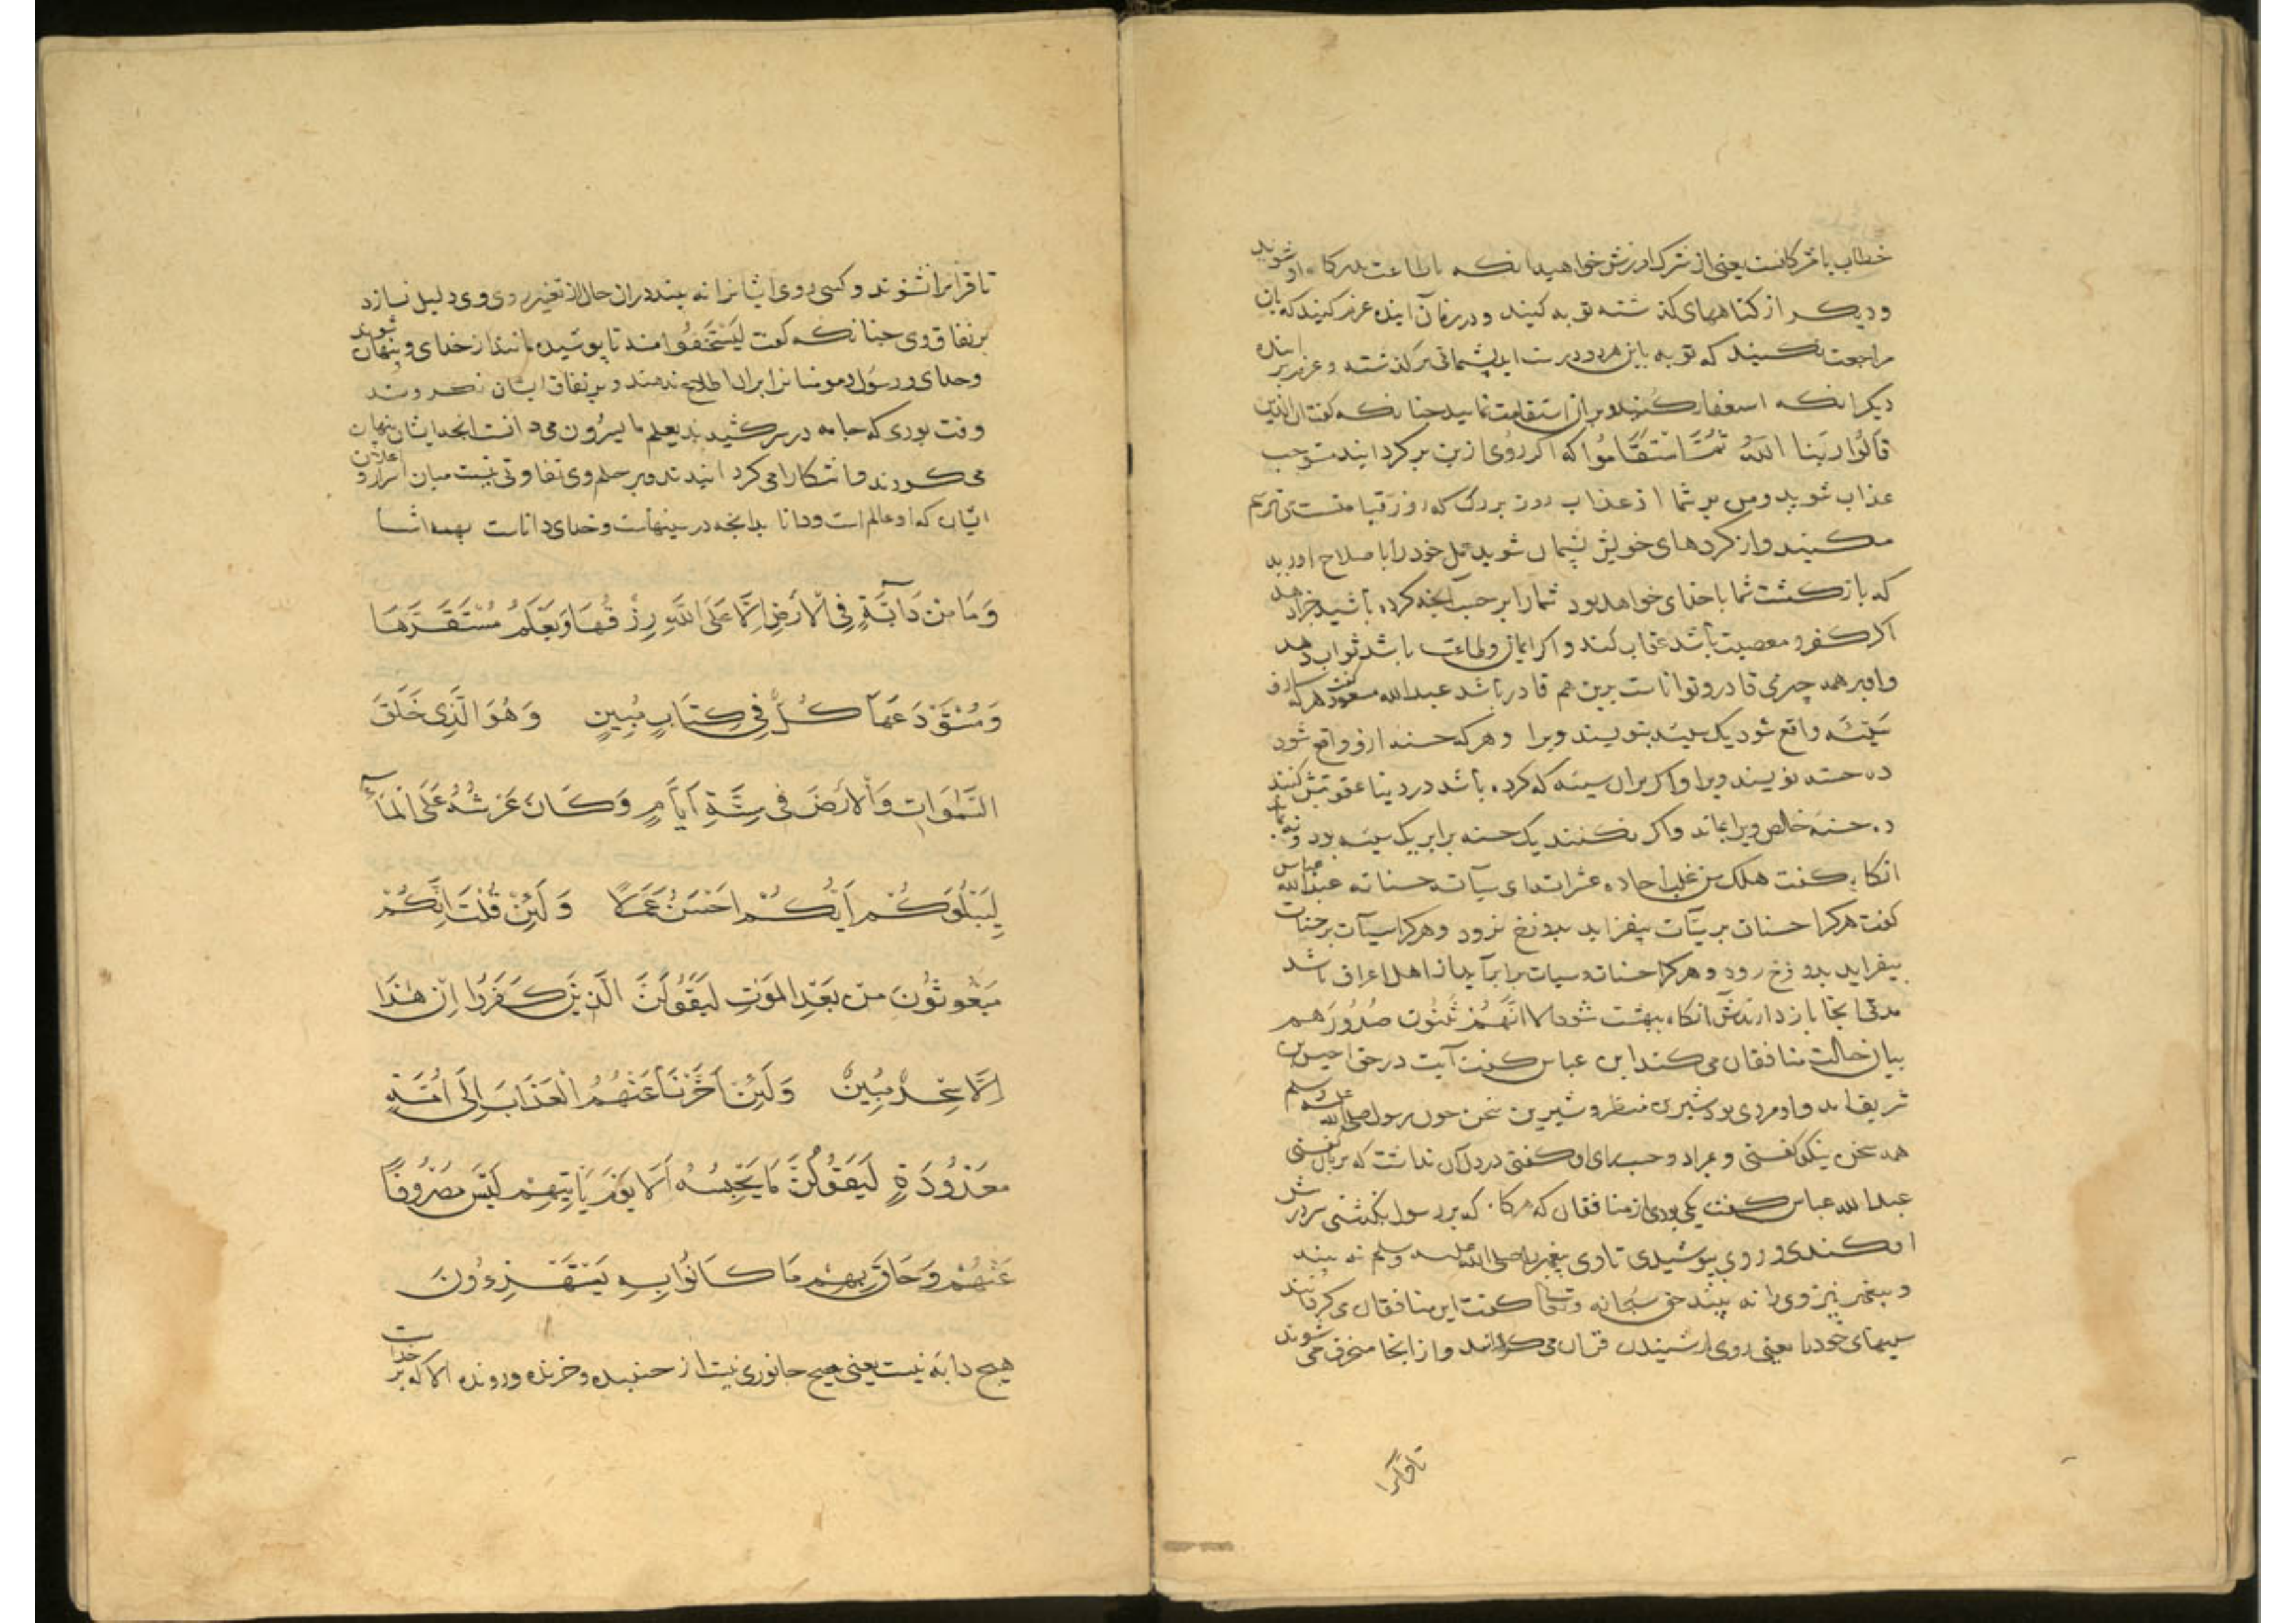 خطاب با مشرکانست یعنی از شرک امرزش خواهید انکه باطاعت بدرکاه او شوید
و دیکر از کناههای کذشته توبه کنید و در زمان اینده عزم کنید که بان
مراجعت نکنید که توبه باین هردو درست اید پشمانی بر کذشته و عزم بر اینده
دیکر انکه استغفار کنید و بران استقامت نمایید چنانکه کفت ان الذین
قالُوا رَبَنا اللهُ ثُمَّ استَقَامُوا که اکر روُی ازین بر کردانید مستوجب
عذاب شوید و من بر شما از عذاب روز بزرک که روز قیامتست می ترسم
مکنید و از کردهای خویش پشیمان شوید عمل خود را باصلاح اورید
که بازکشت شما با خدای خواهد بود شما را بر حسب آنچه کرده باشید جزا دهد
اکر کفر و معصیت باشد عقاب کند و اکر ایمان و طاعت باشد ثواب دهد
و او بر همه چیزی قادر و تواناست برین هم قادر باشد عبدالله مسعود کفت هرکه ازو
سَیّئَه واقع شود یک سیئه بنویسند ویرا و هرکه حسنه ازو واقع شود
ده حسنه نویسند ویرا و اکر بران سیئه که کرده باشد در دنیا عقوبتش کنند
ده حسنَه خالص ویرا بماند و اکر نکنند یک حسنه برابر یک سیئه بود و نه بماند
انکاه کفت هلک من غلب احاده عشراته ای سیآته حسناته عبدالله عباس
کفت هرکرا حسنات بر سیّآت بیفزاید بدوزخ نرود و هرکرا سیآت بر حسنات
بیفزاید بدوزخ رود و هرکرا حسنات و سیات برابر آید از اهل اعراف باشد
مدتی انجا باز دارندش آنکاه ببهشت شود الا اِنَّهُمْ یَثنُون صُدُورَهم
بیان حالت منافقان می کند ابن عباس کفت آیت در حق اخنس بن
شریق امد و او مردی بود شیرین منظر و شیرین سخن چون رسول صلی الله علیه وسلم
همه سخن نیکو کفتی و بمراد و حسب رای او کفتی در دل آن نداشت که بر زبان کفتی
عبدالله عباس کفت یکی بودی از منافقان که هرکاه که بر رسول بکذشتی سر در پیش
افکندی و روی بپوشیدی تا وی پیغمبر را صلی الله علیه وسلم نه بیند
و پیغمبر نیز وی را نه بیند حق سُبحانه وتعالی کفت این منافقان می کردانند
سینهای خود را یعنی روی از شنیدن قرآن می کردانند و از انجا منحرف می شوند
تا قرآنرا
تا قرآنرا نشنوند و کسی روی ایشانرا نه بیند دران حال از تغیر روی وی دلیل نسازد
بر نفاق وی چنانکه کفت لِیَسْتَخفُوا منه تا پوشیده مانند از خدای و پنهان شوند
و خدای و رسول و مومنانرا بران اطلاع ندهند و بر نفاق ایشان نکروند
وقت بودی که جامه در سر کشیدندی یعلم ما یسرُون می دانست انچه ایشان پنهان
می کردند و آشکارا می کردانیدند و بر علم وی تفاوتی نیست میان اسرار و اعلان
ایشان که او عالم است و دانا بدانچه در سینهاست و خدای داناست بهمه اشیا
وَمَا مِن دَآبَّةٍ فِی الاَرضِ اِلَّا عَلَی اللّهِ رِزْقُهَا وَیَعْلَمُ مُسْتَقَرَّهَا
وَمُسْتَوْدَعَهَا کُلٌّ فِی کِتَابٍ مُبِینٍ وَهُوَ الَّذِی خَلَقَ
السَّمٰوَاتِ وَالاَرْضَ فی سِتَّةِ اَیَّامٍ وَکَانَ عَرْشُهُ عَلَی الْمَآءِ
لِیَبْلُوَکُمْ اَیُّکُمْ اَحْسَنُ عَمَلًا وَلَئِنْ قُلْتَ اِنَّکُمْ
مَبْعُوثُونَ مِنْ بَعْدِ المَوْتِ لَیَقُولَنَّ الَّذِینَ کَفَرُوا اِنْ هٰذَا
اِلَّا سِحْرٌ مُبِینٌ وَلَئِنْ اَخَّرْنَا عَنْهُمُ الْعَذَابَ اِلَی اُمَّةٍ
مَعْدُودَةٍ لَیَقُولُنَّ مَا یَحْبِسُهُ اَلَا یَوْمَ یَاتِیهِمْ لَیْسَ مَصْرُوفًا
عَنْهُمْ وَحَاقَ بِهِمْ مَا کَانُوا بِهِ یَسْتَهْزِءُونَ
هیچ دابَه نیست یعنی هیچ جانوری نیست از جنبنده و خزنده و رونده الا که بر خداست